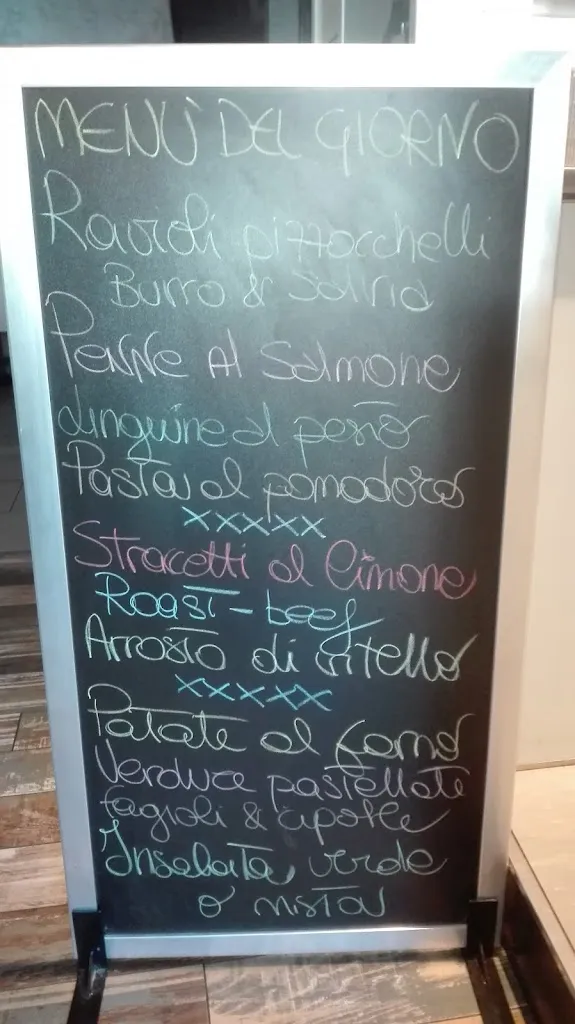 MENÙ DEL GIORNO
Ravioli pizzocchelli
Burro & Salvia
Penne Al Salmone
Linguine al pesto
Pasta al pomodoro
xxxxx
Stracetti al limone
Roast-beef
Arrosto di vitello
xxxxx
Patate al forno
Verdure pastellate
fagioli & cipolle
Insalata verde
o mista